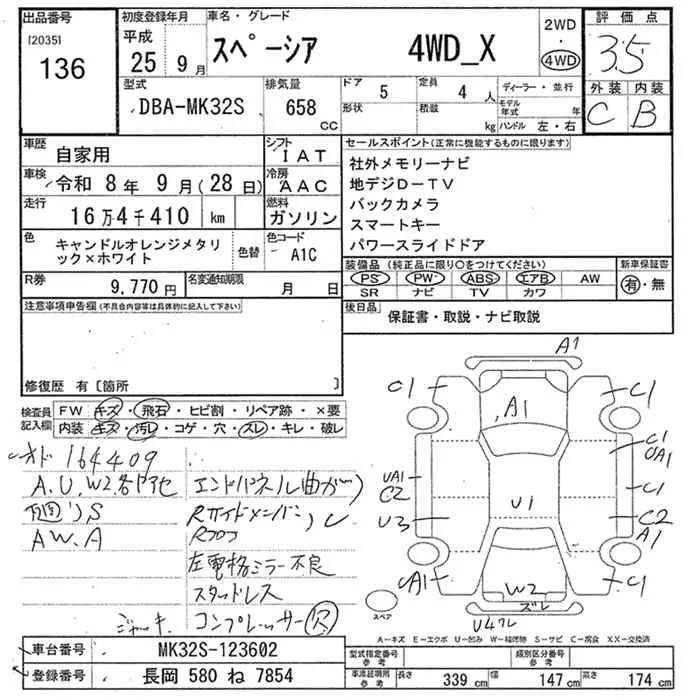 出品番号
[2035]
136
初度登録年月
平成
25年 9月
車名・グレード
スペーシア 4WD_X
2WD
・
4WD
評価点
3.5
外装 内装
C B
型式
DBA-MK32S
排気量
658
CC
ドア 5
定員 4 人
形状
積載 kg
ディーラー・並行
モデル年式 年
ハンドル 左・右
車歴
自家用
シフト
IAT
車検
令和 8年 9月(28日)
冷房
AAC
走行
16万4千410 km
燃料
ガソリン
色
キャンドルオレンジメタリ
ック×ホワイト
色替
色コード
A1C
R券
9,770円
名変通知期限
月 日
注意事項申告欄(不具合内容等は具体的に記入して下さい)
修復歴 有〔箇所 〕
セールスポイント(正常に機能するものに限ります)
社外メモリーナビ
地デジD-TV
バックカメラ
スマートキー
パワースライドドア
装備品(純正品に限り○をつけてください)
PS・PW・ABS・エアB・AW
SR ナビ TV カワ
新車保証書
有・無
後日品
保証書・取説・ナビ取説
検査員
記入欄
FW キズ・飛石・ヒビ割・リペア跡・×要
内装 キズ・汚レ・コゲ・穴・スレ・キレ・破レ
オド 164409
A.U.W2各キセ
エンドパネル(曲がり)
Rサイドメンバー,C
AW.A
Rフロア
左電格ミラー不良
スタッドレス
ジャッキ. コンプレッサー欠
A1
C1
C1
A1
C1
UA1
UA1
C2
C1
U1
U3
C2
A1
CA1
C1
W2
ズレ
U4ワレ
スペア
A-キズ E-エクボ U-凹み W-補修跡 S-サビ C-腐食 XX-交換済
車台番号
MK32S-123602
登録番号
長岡 580 ね 7854
型式指定番号
参考
類別区分番号
参考
車庫証明用
参考
長さ 339 cm
幅 147 cm
高さ 174 cm